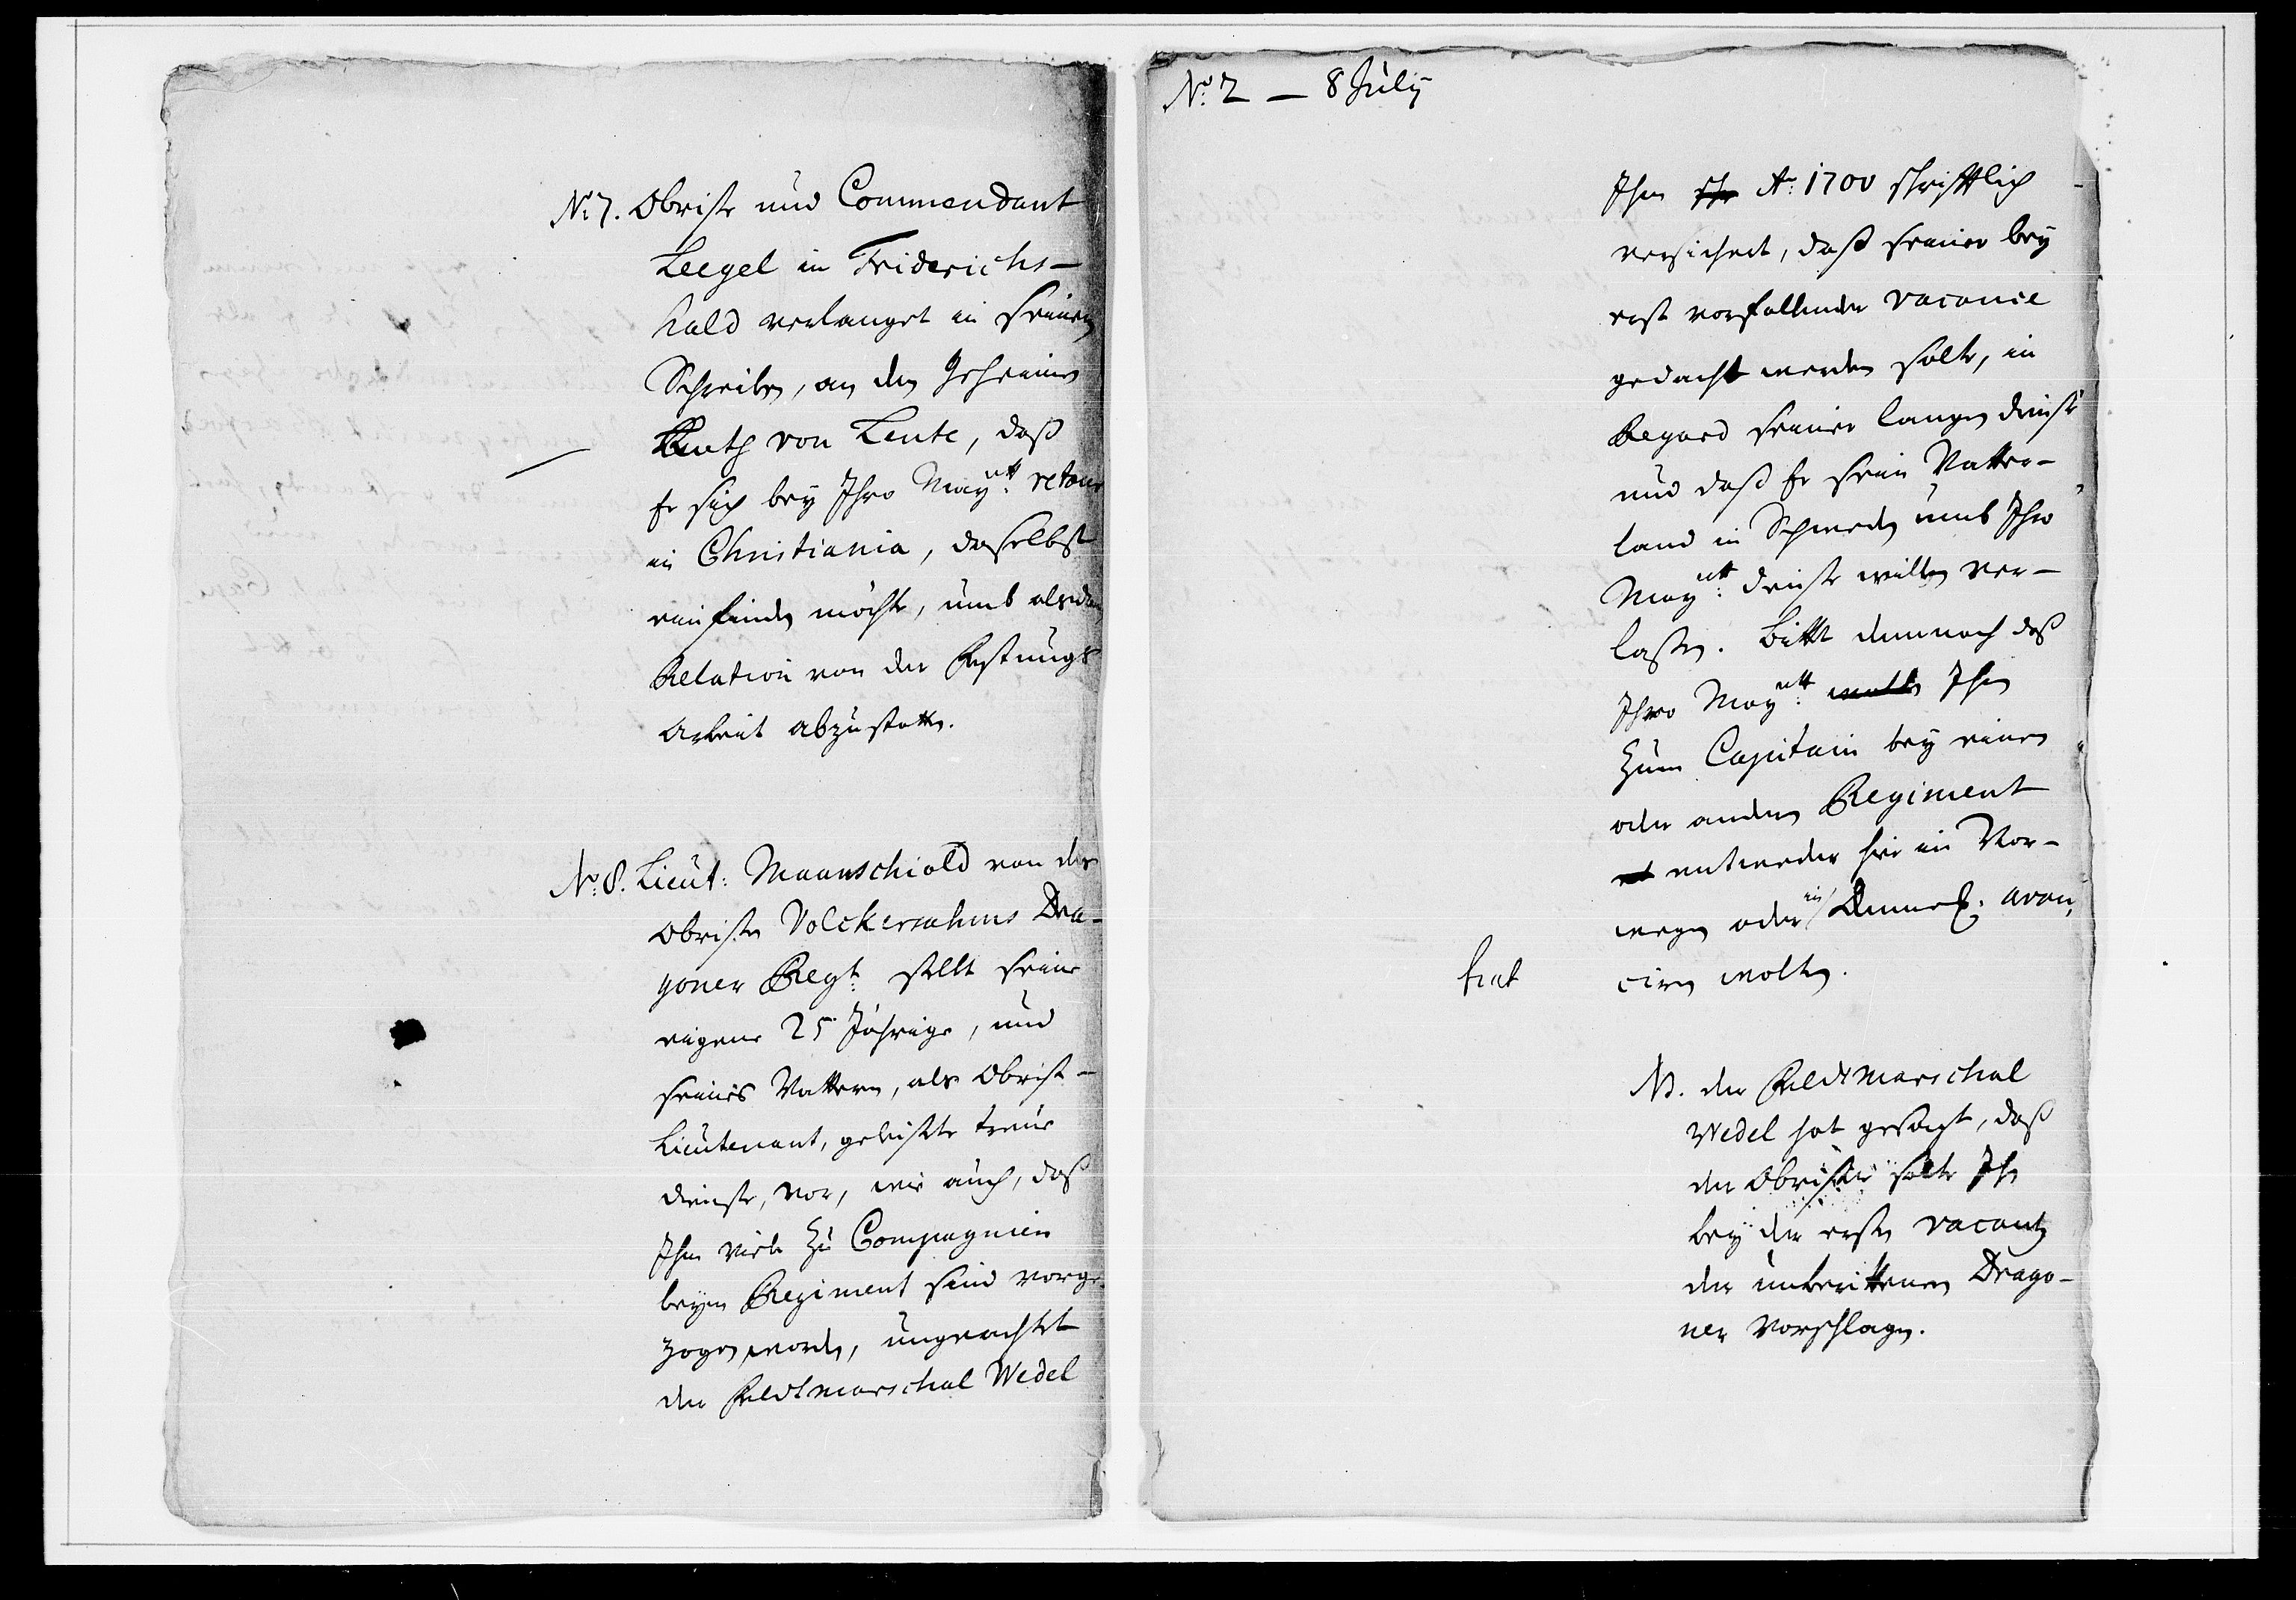 No: 7. Obriste und Commendant
Leegel in Friderichs-
hald verlanget in seinen
Schreiben, an den Geheimen
Rath von Lente, daß
Er sich bey Ihro Mayett: retour
in Christiania, daselbst
einfinden möchte, umb alsdan
Relation von der Festungs
Arbeit abzustatten.
No: 8. Lieut: Maanschiold von des
Obristen Volckersahms Dra-
goner Regt: stellt seine
eigene 25 Jährige, und
seines Vattern, als Obrist-
Lieutenant, geleistete treue
dienste, vor, wie auch, daß
Ihm viele zu Compagnien
beym Regiment sind vorge-
zogen worden, ungeachtet
der Feldtmarschal Wedel
No: 2 — 8 Julij
Ihm Ao: 1700 schrifftlich
versichert, daß seiner bey
erst vorfallender vacance
gedacht werden solte, in
Regard seiner langen dienste
und daß Er sein Vatter-
land in Schweden umb Ihro
Mayett: dienste willen ver-
laßen. Bittet demnach daß
Ihro Mayett: wollen Ihn
zum Capitain bey einen
oder andern Regiment
entweder hie in Nor-
wegen oder in Dennem: avan-
fiat
ciren wolten.
NB. der Feldtmarschal
Wedel hat gesagt, daß
der Obrister solte Ihn
bey der ersten vacantz
der unberittenen Drago-
ner vorschlagen.